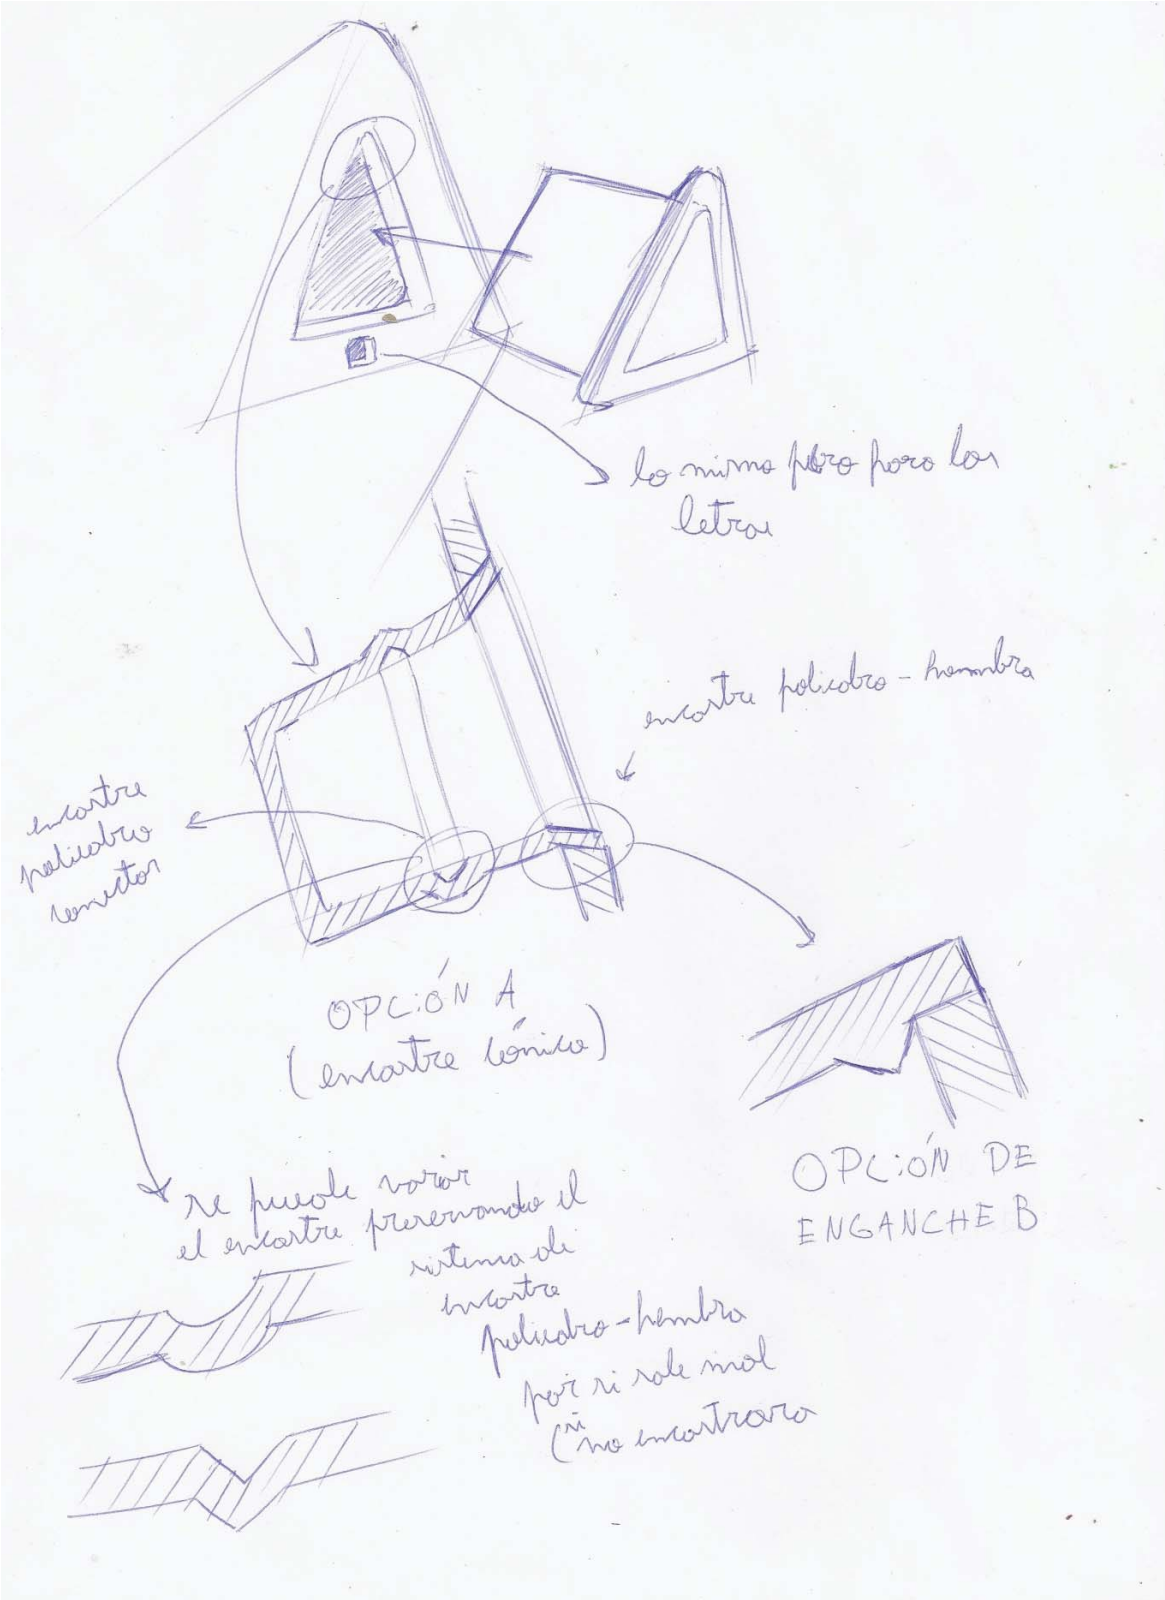 lo mismo pero para las
letras
encastre poliedro - hembra
encastre
poliedro
conector
OPCIÓN A
(encastre cónico)
OPCIÓN DE
ENGANCHE B
se puede variar
el encastre preservando el
sistema de
encastre
poliedro - hembra
por si sale mal
(si no encastrara